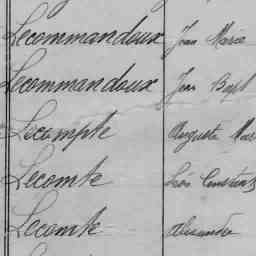 Lecommandoux Jean Marie
Lecommandoux Jean Bapt
Lecompte Auguste Mar
Lecomte Léon Constant
Lecomte Alexandre